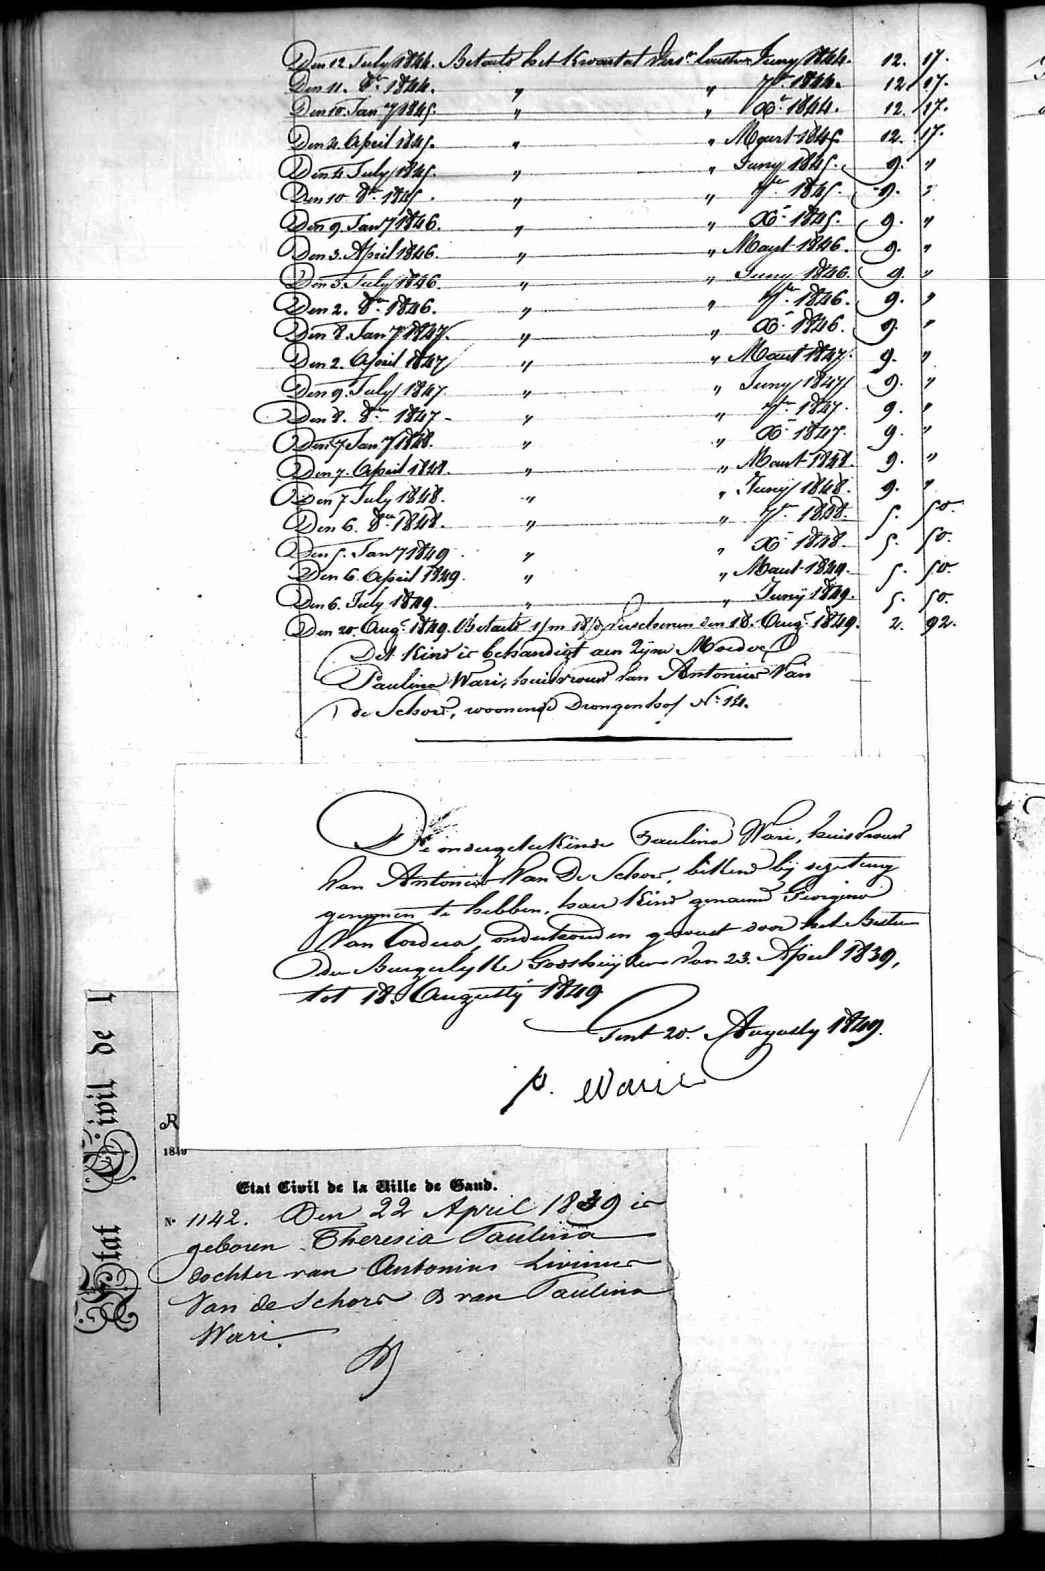 Den 12 July 1844. Betaald het Kwartaal Juny 1844. 12. 17.
Den 11. 8er 1844. " " 7er 1844. 12 17.
Den 10. Jany 1845. " " Xr 1844. 12. 17.
Den 2. April 1845. " " Maert 1845. 12. 17.
Den 4 July 1845. " " Juny 1845. 9. "
Den 10 8er 1845. " " 7er 1845. 9. "
Den 9. Jany 1846. " " Xr 1845. 9. "
Den 3. April 1846. " " Maert 1846. 9. "
Den 3. July 1846. " " Juny 1846. 9. "
Den 2. 8er 1846. " " 7er 1846. 9. "
Den 8. Jany 1847. " " Xr 1846. 9. "
Den 2. April 1847 " " Maert 1847. 9. "
Den 9. July 1847 " " Juny 1847 9. "
Den 8. 8er 1847 - " " 7er 1847. 9. "
Den 7 Jany 1848. " " Xr 1847. 9. "
Den 7. April 1848. " " Maert 1848. 9. "
Den 7 July 1848. " " Junÿ 1848. 9. "
Den 6. 8er 1848. " " 7er 1848. 5. 50.
Den 5. Jany 1849 " " Xr 1848. 5. 50.
Den 6. April 1849. " " Maert 1849. 5. 50.
Den 6. July 1849. " " Junÿ 1849. 5. 50.
Den 20. Augt 1849. Betaald den 18. Augt 1849. 2. 92.
Det Kind is behandigt aen zyne Moeder
Paulina Wari, huisvrouw van Antonius Van
de Schoor, woonende Drongenhof Nr 14.
De ondergeteekende Paulina Wari, huisvrouw
van Antonius Van De Schoor, bekend by
genomen te hebben, haer Kind genaemd Georgina
Van Cordua, onderhouden geweest door het Bestier
der Burgerlyke Godshuyzen van 23. April 1839,
tot 18. Augusty 1849
Gent 20. Augusty 1849.
p. warie
Etat Civil de l
R
1849
Etat Civil de la Ville de Gand.
No 1142. Den 22 April 1839 is
geboren Theresia Paulina
dochter van Antonius Livinus
Van de Schoor & van Paulina
Wari.